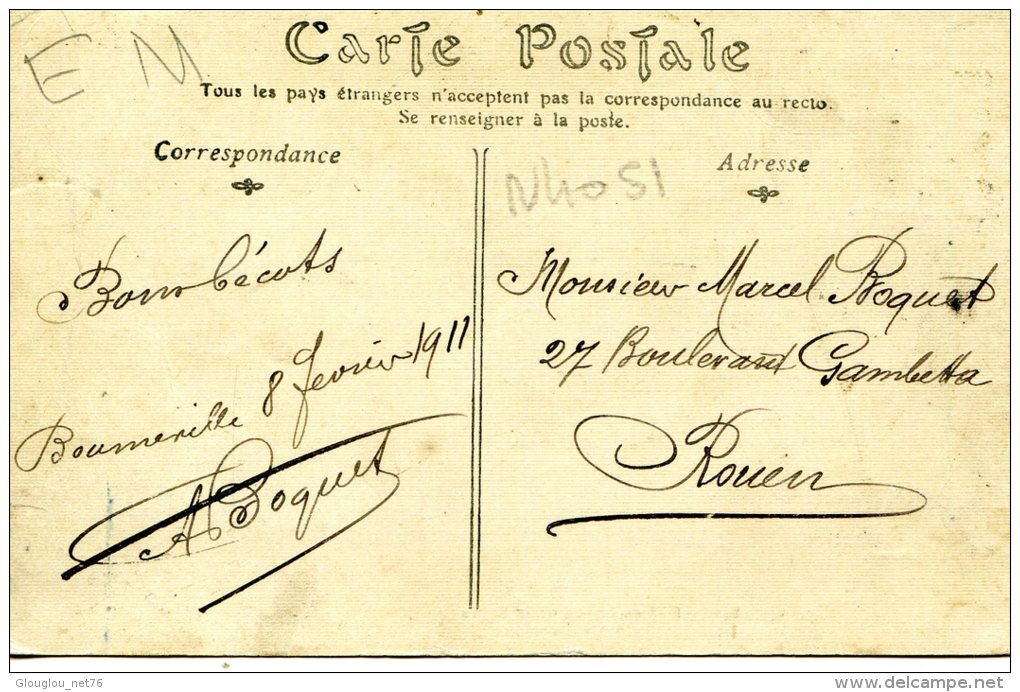 E M
Carte Postale
Tous les pays étrangers n'acceptent pas la correspondance au recto.
Se renseigner à la poste.
Correspondance
Bons bécots
8 février 1911
A Boquet
Adresse
Monsieur Marcel Boquet
27 Boulevard Gambetta
Rouen
Glouglou_net76
delcampe.net